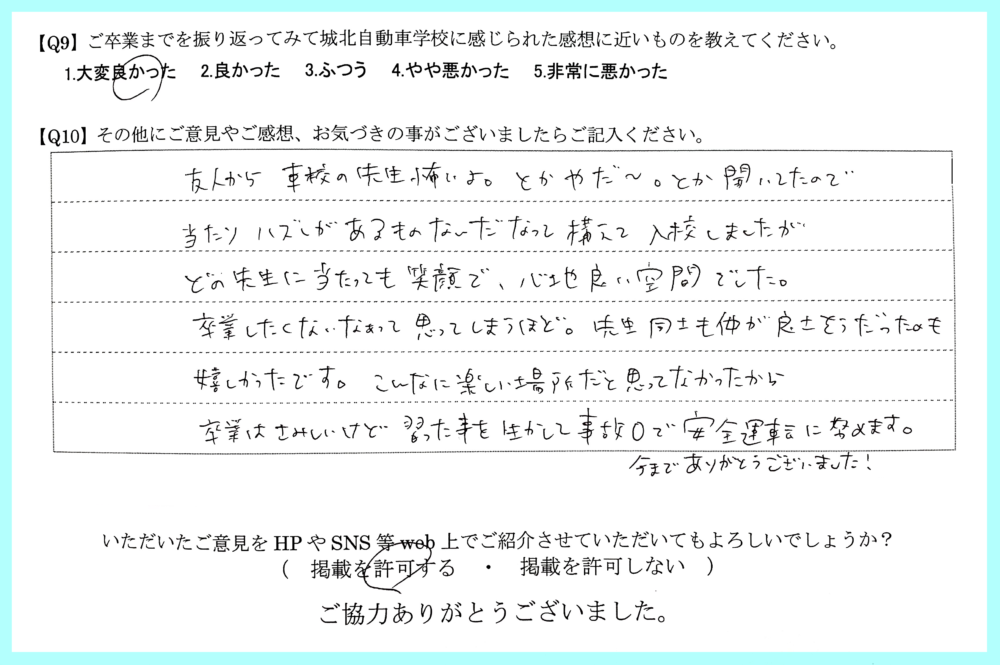 【Q9】ご卒業までを振り返ってみて城北自動車学校に感じられた感想に近いものを教えてください。
1.大変良かった 2.良かった 3.ふつう 4.やや悪かった 5.非常に悪かった
【Q10】その他にご意見やご感想、お気づきの事がございましたらご記入ください。
友人から 車校の先生怖いよ。とかやだ～。とか聞いてたので
当たりハズレがあるものなんだなって構えて入校しましたが
どの先生に当たっても笑顔で、心地良い空間でした。
卒業したくないなぁって思ってしまうほど。先生同士も仲が良さそうだったのも
嬉しかったです。こんなに楽しい場所だと思ってなかったから
卒業はさみしいけど 習った事を生かして事故0で安全運転に努めます。
今までありがとうございました!
いただいたご意見をHPやSNS等web上でご紹介させていただいてもよろしいでしょうか?
( 掲載を許可する ・ 掲載を許可しない )
ご協力ありがとうございました。